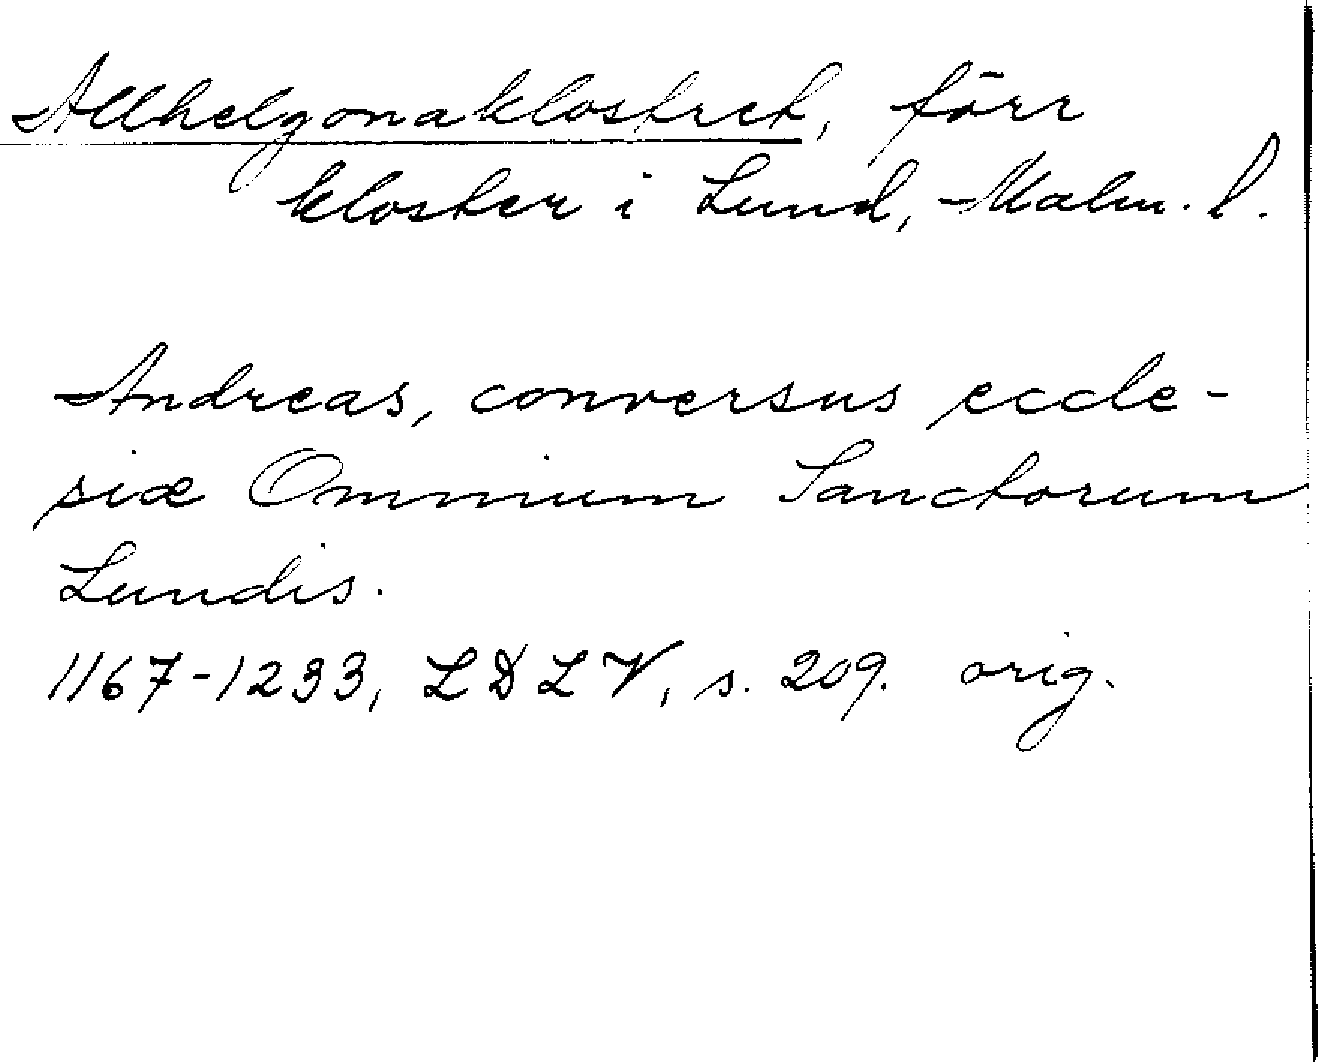 Allhelgonaklostret, förr
kloster i Lund, Malm. l.
Andreas, conversus eccle-
siæ Omnium Sanctorum
Lundis.
1167-1233, LDLV, s. 209. orig.